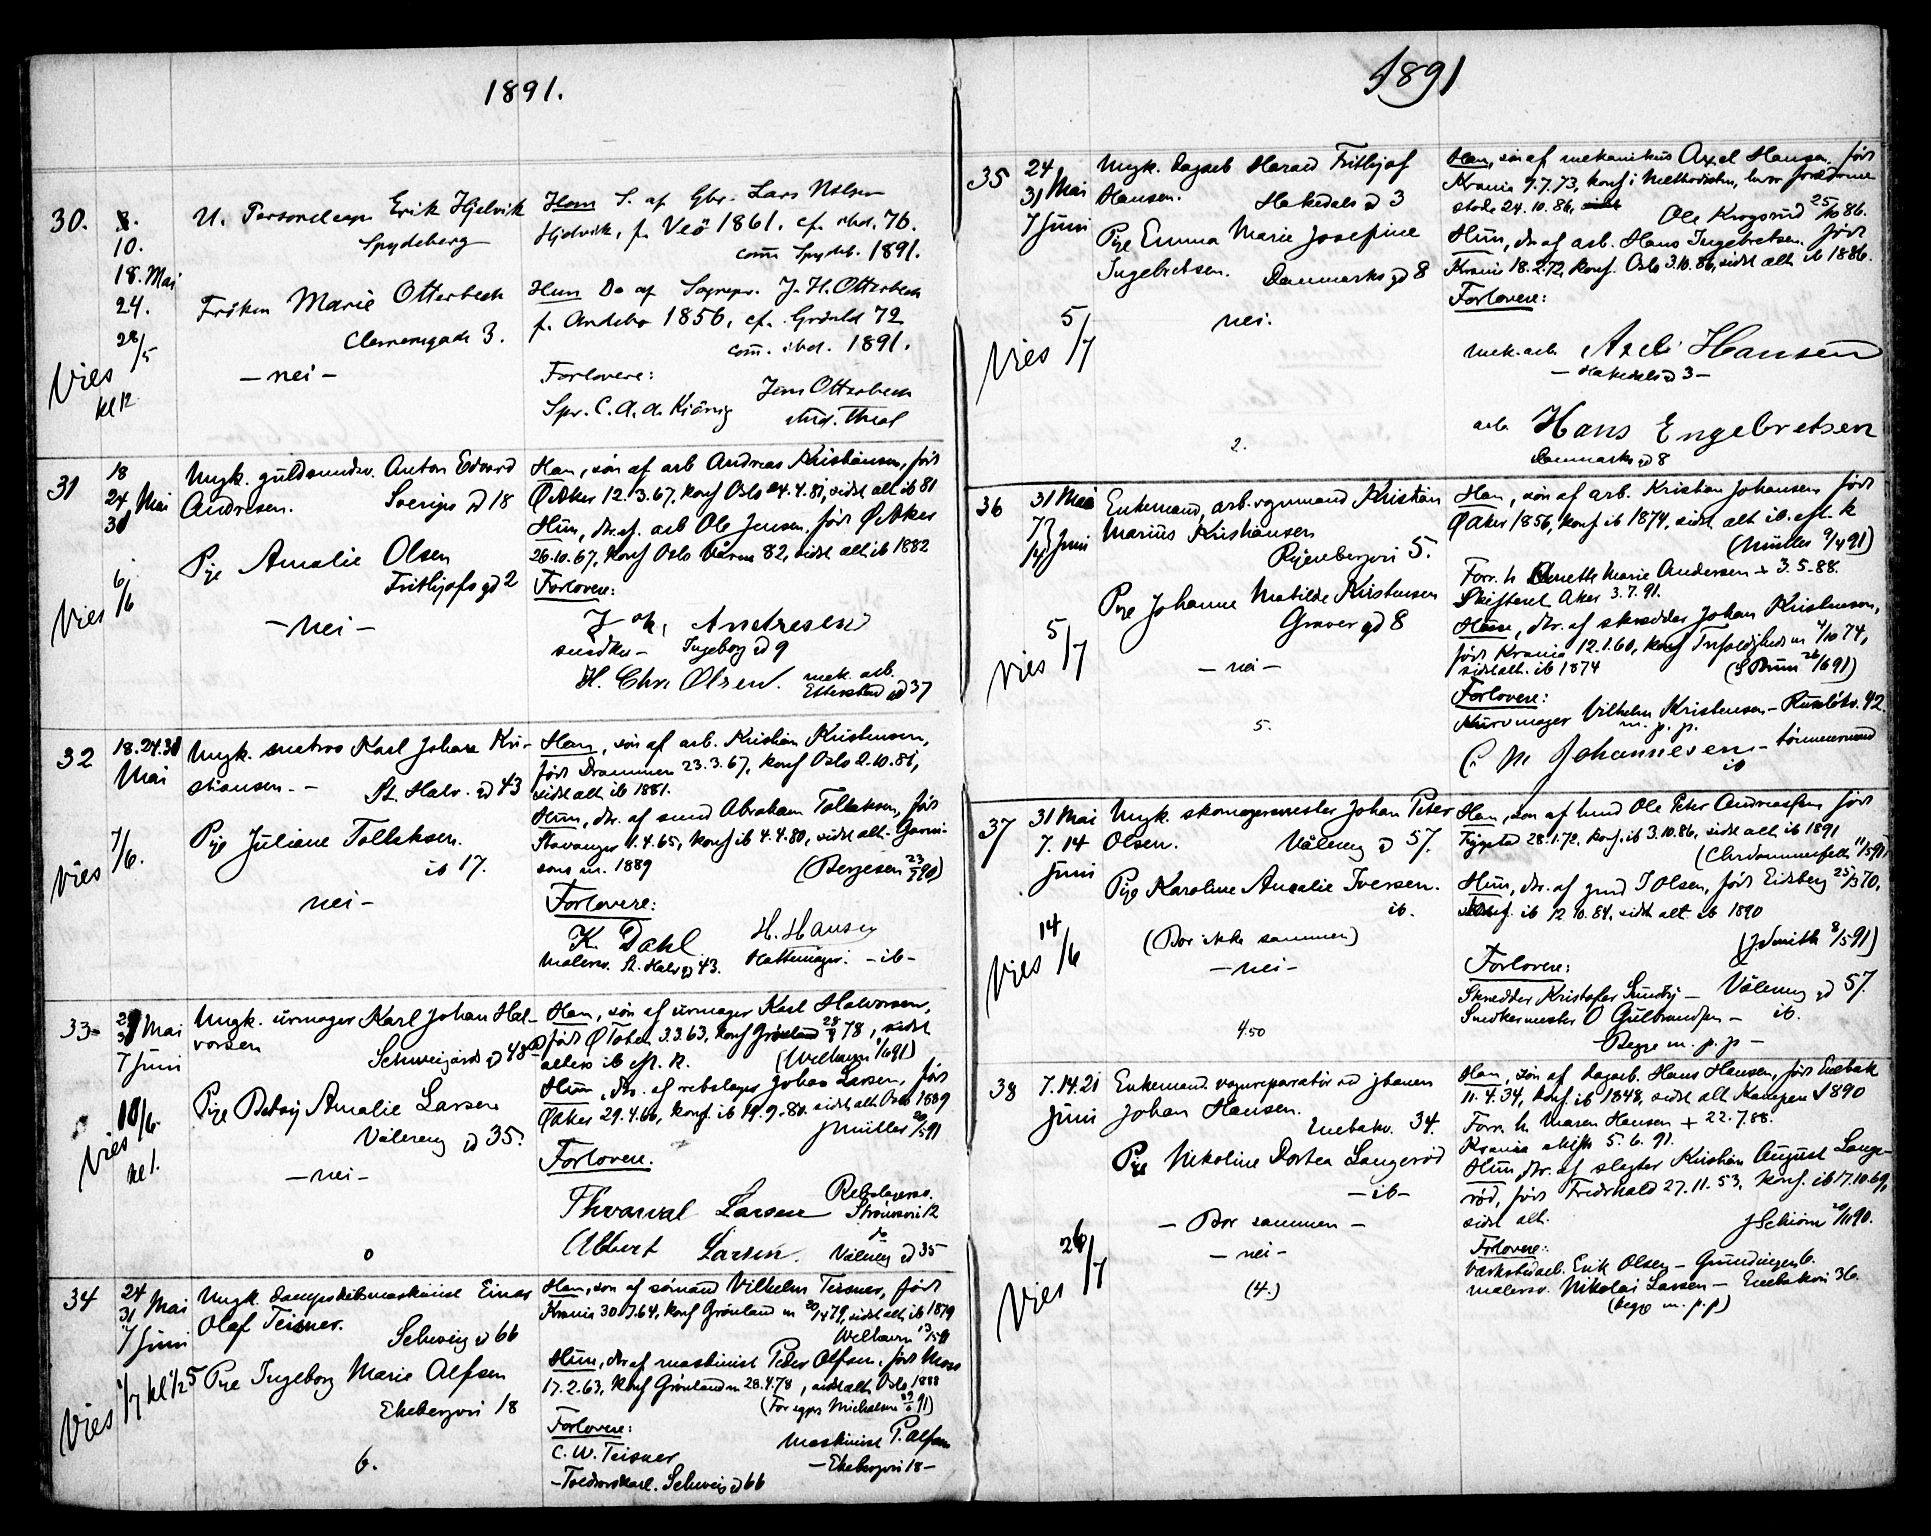 1891.
30.
8.
10.
18. Mai
24.
28/5
Vies
kl 12
U. Personelcap. Erik Hjelvik
Spydeberg
Frøken Marie Otterbech
Clemensgade 3.
- nei -
Ham S. af Gbr. Lars Nilsen
Hjelvik, f. Veö 1861. cf. ibd. 76.
com Spydeb. 1891.
Hun Do af Sognepr. J. H. Otterbech
f. Andebo 1856, cf. Grönld 72
com. ibd. 1891.
Forlovere:
Spr. C. A. A. Kjönig
Jens Otterbech
stud. theol
31
18
24 Mai
31
6/6
Vies
Ungk. guldsmedsv. Anton Edvard
Andresen. Sverigs gd 18
Pige Amalie Olsen
Frithjofs gd 2
- nei -
Han, søn af arb Andreas Kristiansen, født
Ø Aker 12.3.67, konf Oslo 24.4.81, sidst alt ib 81
Hun, dtr. af arb Ole Jensen, født Ø Aker
26.10.67, konf Oslo Våren 82, sidst alt ib 1882
Forlovere:
Joh. Andresen
snedker - Ingeborg gd 9
H. Chr. Olsen. mek. arb.
Etterstad gd 37
32
18.24.31
Mai
7/6.
Vies
Ungk. matros Karl Johan Kri-
stiansen - St. Halv. gd 43
Pige Juliane Tollaksen.
ib 17.
nei -
Han, søn af arb. Kristian Kristensen,
født Drammen 23.3.67, konf Oslo 2.10.81,
sidst alt ib 1881.
Hun, dtr. af smed Abraham Tollaksen, født
Stavanger 1.4.65, konf ib 4.4.80, sidst alt. Garni-
sons m. 1889 (Bergesen 23/5 90)
Forlovere:
K. Dahl H. Hansen
Malersv. St. Halv gd 43. Hattemager. - ib -
33
31 Mai
7 Juni
10/6
Vies
kl 1.
Ungk. urmager Karl Johan Hal-
vorsen
Schweigårds gd 48
Pige Betsy Amalie Larsen
Vålereng gd 35.
- nei -
0
Han, søn af urmager Karl Halvorsen,
født Ø Toten 3.3.63, konf Grønland 28/4 78, sidst
alters ib eft. k. (Welhaven 1/6 91)
Hun, dtr. af rebslager Johan Larsen, født
Ø Aker 29.4.66, konf. ib 19.9.80. sidst alt Oslo 1889
J Müller 20/5 91
Forlovere.
Thorvval Larsen Rebslagersv.
Strömsvei 12
Albert Larsen. do
Vålereng gd 35
34
24
31 Mai
7 Juni
1/7 kl 1/2 5
Vies
Ungk. dampskibsmaskinist Einar
Olaf Teisner.
Schweig gd 66
Pige Ingeborg Marie Alfsen
Ekebergvei 18
6.
Han, søn af sømand Vilhelm Teisner, født
Krania 30.7.64, konf Grønland m 20/4 79, sidst alt ib 1879
Welhaven 13/5 91
Hun, dtr af maskinist Peder Alfsen, født Moss
17.2.63, konf Grønland m 28.4.78, sidst alt Oslo 1888
Forlovere:
C. W. Teisner Maskinist P. Alfsen
- Ekebergvei 18 -
- Toldvorskarl. Schweig gd 66
1891
35
24
31 Mai
7 Juni
5/7
Vies
Ungk. Dagarb Harald Frithjof
Hansen. Hakedals gd 3
Pige Emma Marie Josefine
Ingebretsen. Danmarks gd 8
nei.
2.
Han, søn af mekanikus Axel Hansen. født
Krania 7.7.73, konf i Methodistm, hvor forældrene
stode 24.10.86, Ole Krogsrud 25/10 86.
Hun, dtr af arb. Hans Ingebretsen. født
Krania 18.2.72, konf. Oslo 3.10.86, sidst alt ib 1886.
Forlovere:
mek. arb. Axel Hansen
- Hakedals gd 3 -
arb Hans Engebretsen
Danmarks gd 8
36
31 Mai
7
14 Juni
5/7
Vies
Enkemand, arb. vognmand Kristian
Marius Kristiansen
Ryenbergvei 5.
Pige Johanne Matilde Kristensen
Graver gd 8
- nei -
5.
Han, søn af arb. Kristian Johansen født
Ø Aker 1856, konf ib 1874, sidst alt ib. eft. k
(Müller 9/4 91)
Forr. h Annette Marie Andersen + 3.5.88.
Skifteret Aker 3.7.91.
Hun, dtr. af skredder Johan Kristensen,
født Krania 12.1.60, konf Trefoldigheds m 4/10 74,
sidst alt. ib 1874 (S Bruun 26/6 91)
Forlovere:
Kurvmager Vilhelm Kristensen - Rusløkv. 42
m. p. p.
C. M Johannesen - tömmermand
ib
37
31 Mai
7. 14
Juni
14/6
Vies
Ungk. skomagermester Johan Peter
Olsen. Vålereng gd 57.
Pige Karoline Amalie Iversen.
ib.
(Bor ikke sammen)
- nei -
450
Han, søn af hmd Ole Peter Andreassen født
Trygstad 28.1.72, konf. ib 3.10.86, sidst alt ib 1891
(Chr Sommerfeldt 11/5 91)
Hun, dtr. af gmd I Olsen, født Eidsberg 25/3 70,
konf. ib 12.10.84, sidst alt ib 1890
(J Smith 8/5 91)
Forlovere:
Skredder Kristofer Sundby - Vålereng gd 57.
Snedkermester O Gulbrandsen - ib.
- Begge m. p. p -
38
7.14.21
Juni
26/7
Vies
Enkemand. vognreparatör v jrbanen
Johan Hansen.
Enebakv. 34.
Pige Nikoline Dortea Langeröd
- ib -
- Bor sammen -
- nei -
(4.)
Han, søn af dagarb. Hans Hansen, født Enebak
11.4.34, konf ib 1848, sidst alt Kampen 1890
Forr. h. Maren Hansen + 22.7.88.
Krania skifte 5.6.91.
Hun, dtr. af slagter Kristian August Lange-
röd, født Fredrhald 27.11.53, konf. ib 17.10.69,
sidst alt. J Schiøni 20/11 90.
Forlovere:
Værkstedarb. Erik Olsen - Grundingen 6.
malersv. Nikolai Larsen - Enebakvei 36.
(begge m. p. p)